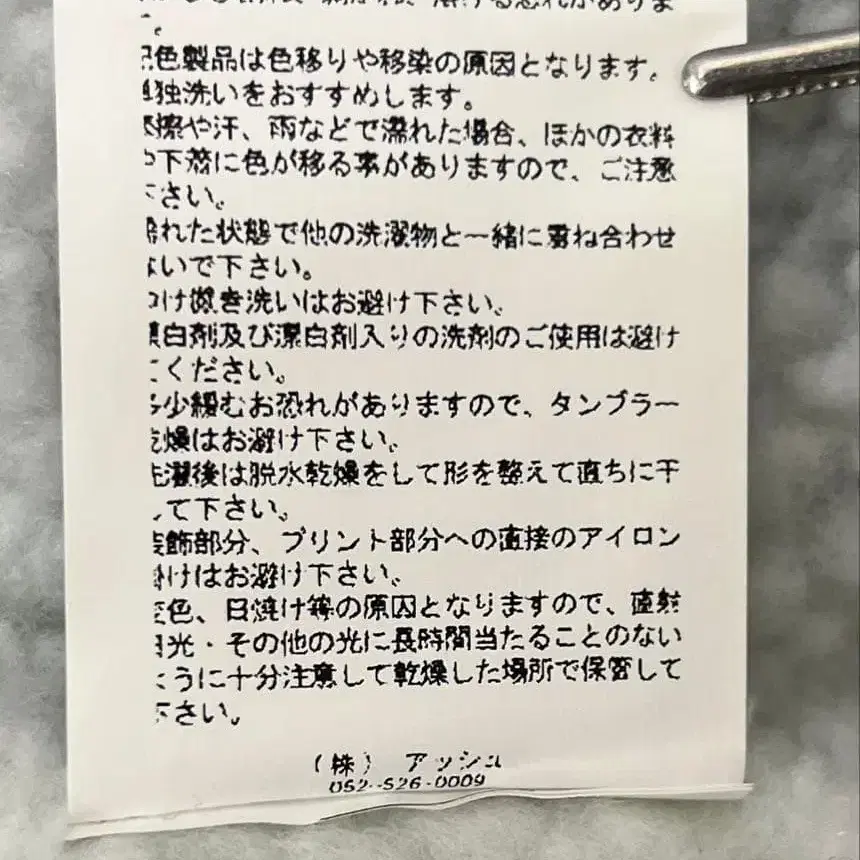 ける恐れがありま
。
配色製品は色移りや移染の原因となります。
単独洗いをおすすめします。
摩擦や汗、雨などで濡れた場合、ほかの衣料
や下着に色が移る事がありますので、ご注意
下さい。
濡れた状態で他の洗濯物と一緒に重ね合わせ
ないで下さい。
つけ置き洗いはお避け下さい。
漂白剤及び漂白剤入りの洗剤のご使用は避け
てください。
多少縮むお恐れがありますので、タンブラー
乾燥はお避け下さい。
洗濯後は脱水乾燥をして形を整えて直ちに干
して下さい。
装飾部分、プリント部分への直接のアイロン
掛けはお避け下さい。
変色、日焼け等の原因となりますので、直射
日光・その他の光に長時間当たることのない
ように十分注意して乾燥した場所で保管して
下さい。
(株) アッシュ
052-526-0009